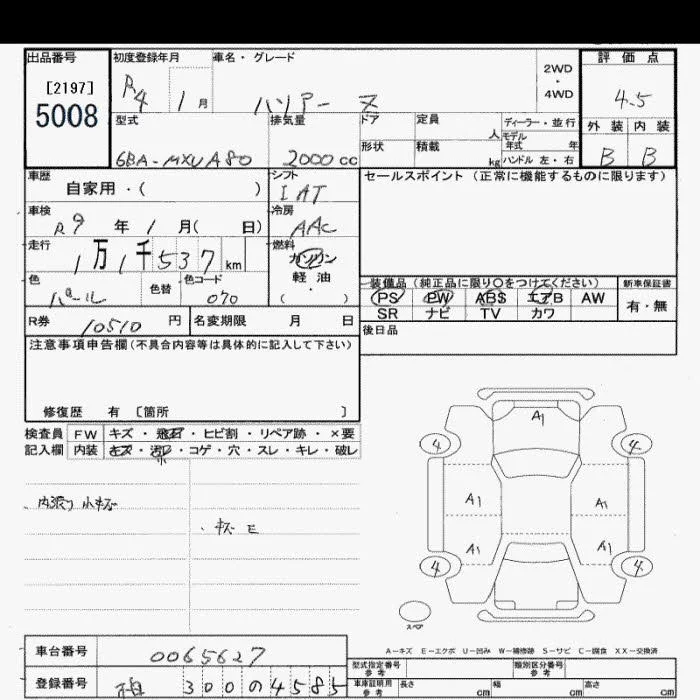 出品番号
[2197]
5008
初度登録年月
R4 1月
車名・グレード
ハリアー Z
2WD
・
4WD
評価点
4.5
外装 内装
B B
型式
6BA-MXUA80
排気量
2000cc
ドア
定員
人
ディーラー・並行
モデル
年式 年
形状
積載
kg
ハンドル 左・右
車歴
自家用・( )
シフト
IAT
セールスポイント (正常に機能するものに限ります)
車検
R9年1月( 日)
冷房
AAC
走行
1万1千537km
燃料
ガソリン
軽油
・
( )
色
パール
色替
色コード
070
装備品 (純正品に限り○をつけてください)
PS PW ABS エアB AW
SR ナビ TV カワ
新車保証書
有・無
R券
10510円
名変期限 月 日
後日品
注意事項申告欄(不具合内容等は具体的に記入して下さい)
修復歴 有 〔箇所 〕
検査員 FW キズ・飛石・ヒビ割・リペア跡・×要
記入欄 内装 キズ・汚レ・コゲ・穴・スレ・キレ・破レ
小
内張り小キズ
・キズE
A1
4 4
A1 A1
A1 A1
4 4
スペア
A-キズ E-エクボ U-凹み W-補修跡 S-サビ C-腐食 XX-交換済
車台番号
0065627
登録番号
300の4585
型式指定番号
参考
類別区分番号
参考
車庫証明用
参考
長さ cm
幅 cm
高さ cm